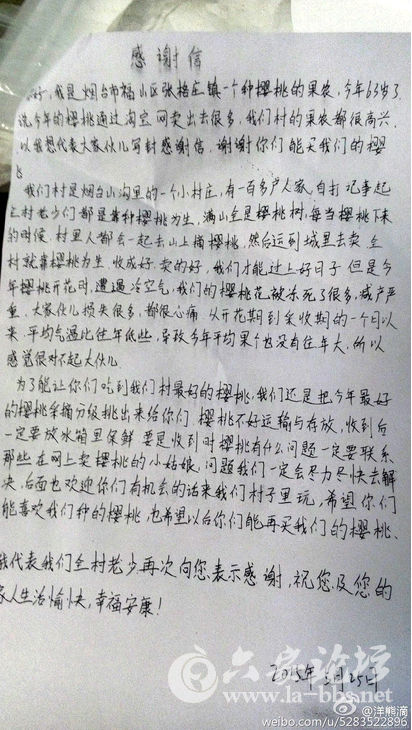 感谢信
好,我是烟台市福山区张格庄镇一个种樱桃的果农,今年63岁了
说今年的樱桃通过淘宝网卖出去很多,我们村的果农都很高兴,
以我想代表大家伙儿写封感谢信,谢谢你们能买我们的樱
我们村是烟台山沟里的一个小村庄,有一百多户人家,自打记事起
村老少们都是靠种樱桃为生,满山全是樱桃树,每当樱桃下来
的时候,村里人都会一起去山上摘樱桃,然后运到城里去卖,全
村就靠樱桃为生,收成好,卖的好,我们才能过上好日子,但是今
年樱桃开花时,遭遇冷空气,我们的樱桃花被冻死了很多,减产严
重,大家伙儿损失很多,都很心痛,从开花期到采收期的一个月以
来,平均气温比往年低些,导致今年平均果个也没有往年大,所以
感觉很对不起大伙儿
为了能让你们吃到我们村最好的樱桃,我们还是把今年最好
的樱桃采摘分级挑出来给你们,樱桃不好运输与存放,收到后
一定要放水箱里保鲜,要是收到时樱桃有什么问题一定要联系
那些在网上卖樱桃的小姑娘,问题我们一定会尽力尽快去解
决,后面也欢迎你们有机会的话来我们村子里玩,希望你们
能喜欢我们种的樱桃,也希望以后你们能再买我们的樱桃、
我代表我们全村老少再次向您表示感谢,祝您及您的
家人生活愉快,幸福安康!
2015年5月25日
六宝论坛
www.la-bbs.net
@洋熊滴
weibo.com/u/5283522896